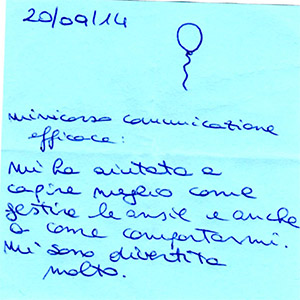 20/09/14
minicorso comunicazione
efficace:
mi ha aiutata a
capire meglio come
gestire le ansie e anche
a come comportarmi.
Mi sono divertita
molto.